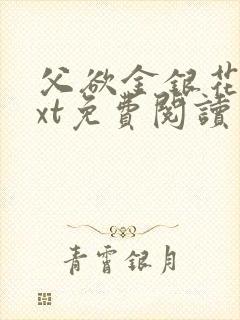 父欲金銀花
xt免費閱讀
青霄銀月